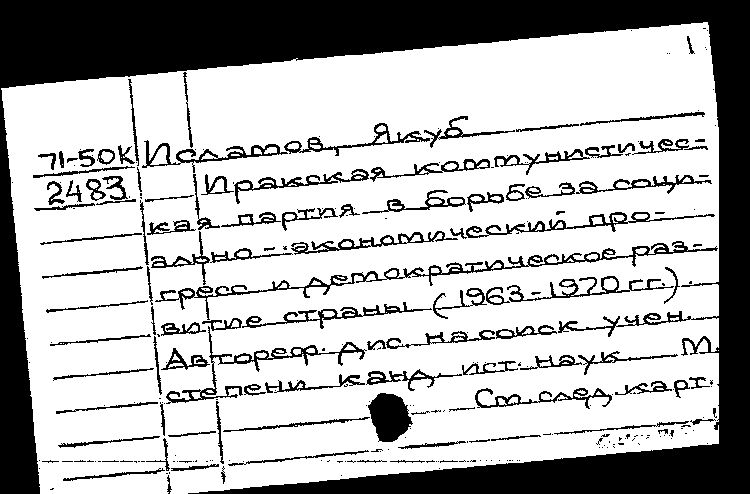 1
71-50К Исламов, Якуб
2483 Иракская коммунистичес=
кая партия в борьбе за соци=
ально-экономический про=
гресс и демократическое раз=
витие страны (1963-1970 гг.).
Автореф. дис. на соиск. учен.
степени канд. ист. наук. М.
См. след. карт.